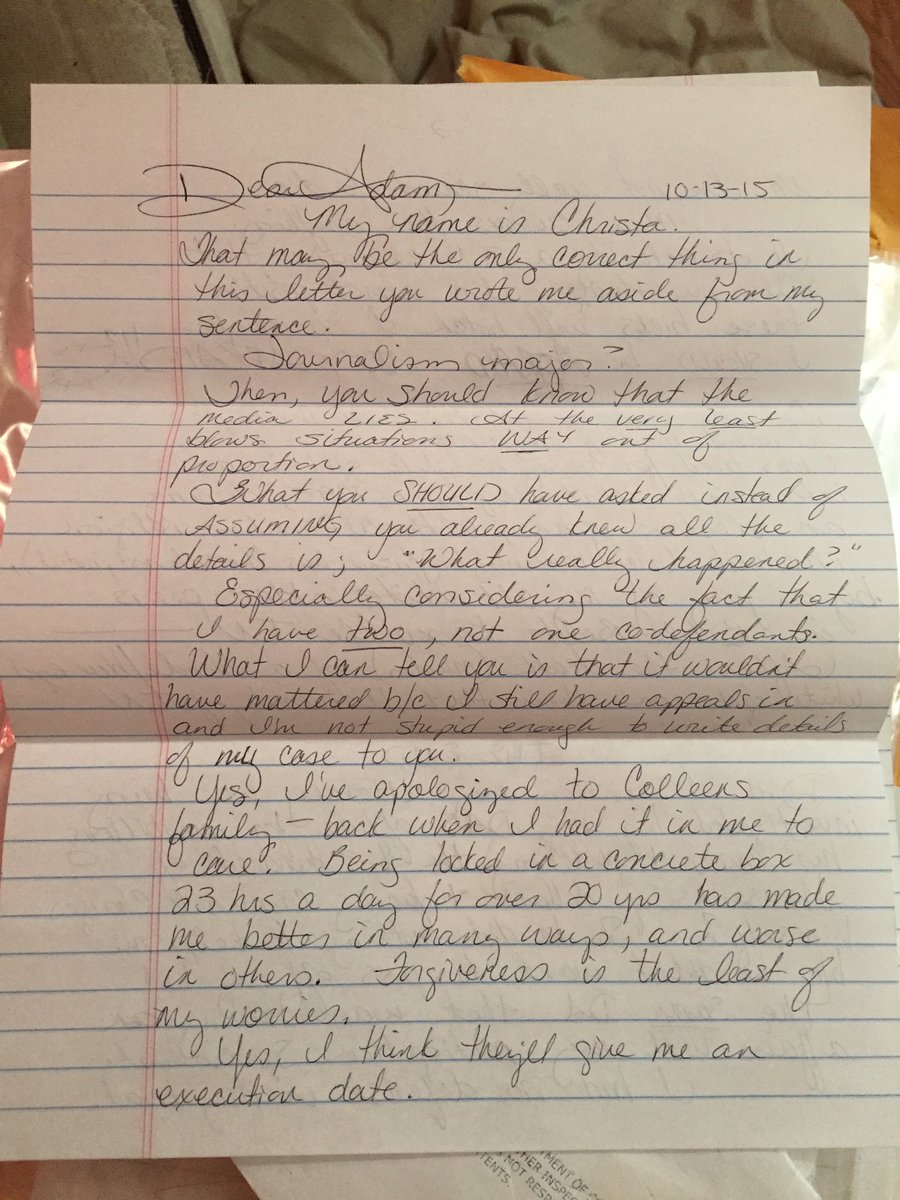 Dear Adam, 10-13-15
My name is Christa.
That may be the only correct thing in
this letter you wrote me aside from my
sentence.
Journalism major?
Then, you should know that the
media LIES. At the very least
blows situations WAY out of
proportion.
What you SHOULD have asked instead of
ASSUMING you already knew all the
details is; "What really happened?"
Especially considering the fact that
I have two, not one co-defendants.
What I can tell you is that it wouldn't
have mattered b/c I still have appeals in
and I'm not stupid enough to write details
of my case to you.
Yes, I've apologized to Colleens
family – back when I had it in me to
care. Being locked in a concrete box
23 hrs a day for over 20 yrs has made
me better in many ways, and worse
in others. Forgiveness is the least of
my worries.
Yes, I think they'll give me an
execution date.
TMENT OF
HER INSPE
NOT RESP
TENTS.